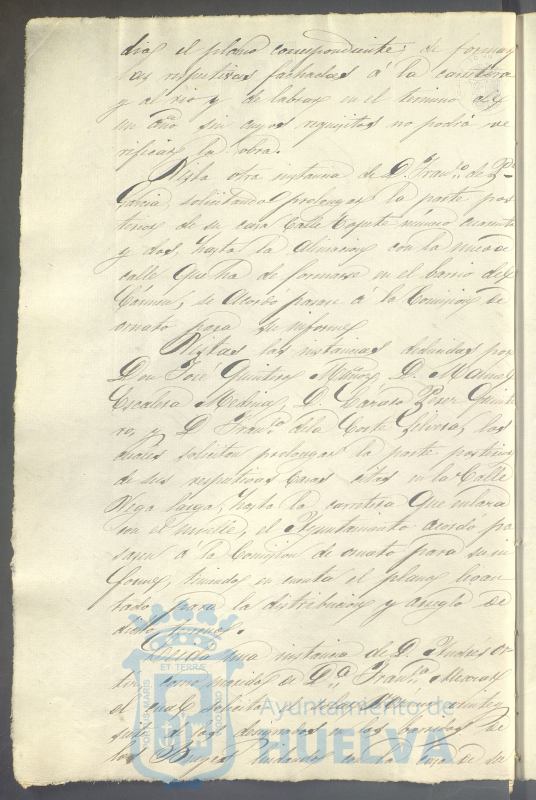 dias el plano correspondiente; de formar
las respectivas fachadas á la carretera
y al rio y de labrar en el termino de
un año sin cuyos requisitos no podrá ve
rificar la obra.
Vista otra instancia de D. Fran.co de P.
Garcia, solicitando prolongar la parte pos
terior de su casa Calle número cuarenta
y dos, hasta la alineacion con la nueva
calle que ha de formarse en el barrio del
Carmen, se acordó pasase á la Comision de
ornato para su informe
Vistas las instancias deducidas por
Don José Quintero Muñoz, D. Manuel
Escalera Medina, D. Lázaro Perez Quinte
ro, y D. Fran.co de la Corte las
cuales solicitan prolongar la parte posterior
de sus respectivas casas sitas en la Calle
Vega Larga, hasta la carretera que enlaza
con el muelle, el Ayuntamiento acordó pa
sasen á la Comision de ornato para su in
forme, teniendo en cuenta el plano levan
tado para la distribucion y arreglo de
dicho terreno.
una instancia de D. Andrés Or
tiz como marido de D.ª Fran.ca
el cual solicita
de los designados a los
con la casa de su
PORTUS MARIS
ET TERRÆ
CUSTODIO
Ayuntamiento de
HUELVA